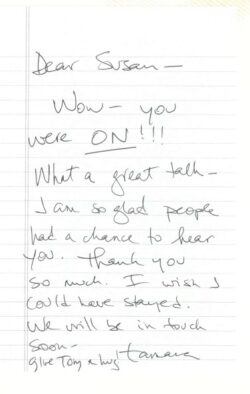 Dear Susan —
Wow — you
were ON!!!
What a great talk —
I am so glad people
had a chance to hear
you. Thank you
so much. I wish I
could have stayed.
We will be in touch
soon —
give Tony a hug! Tamara